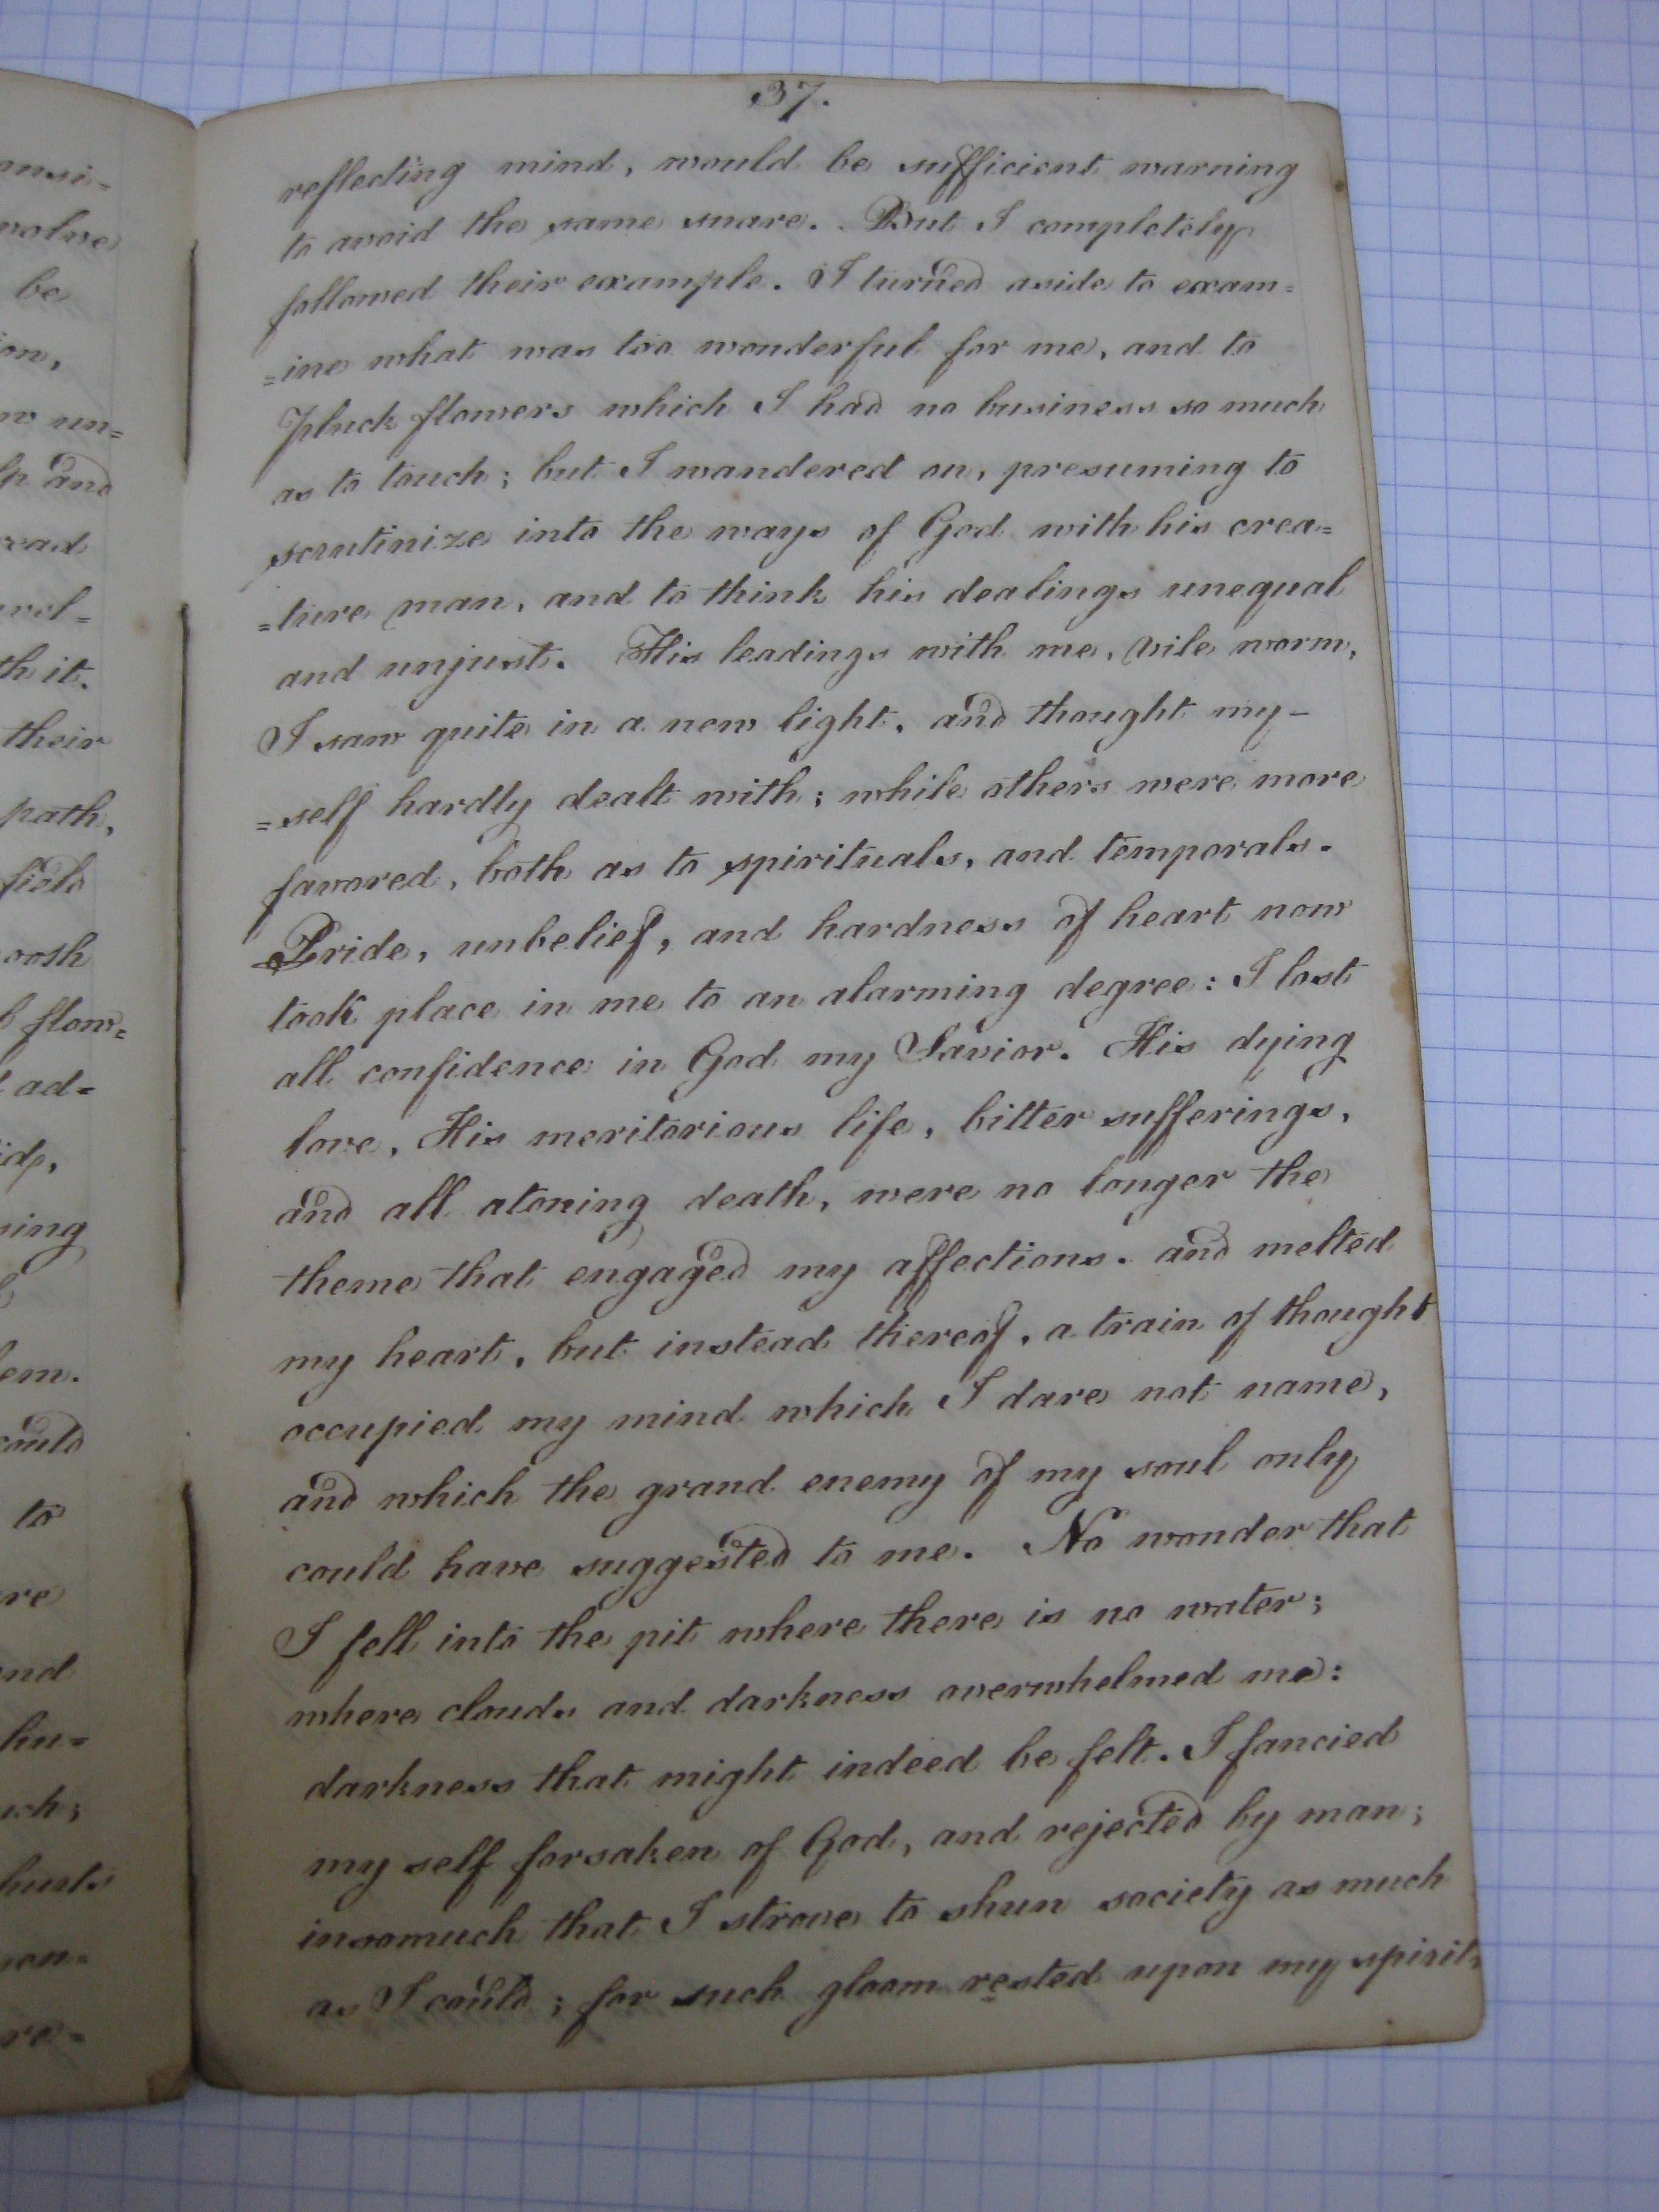 ansi-
volve
be
ion,
w un=
lp and
read
vel-
th it.
their
path,
field
oosh
flow=
ad=
ning
em.
could
to
re
nd
hu=
uch;
hurts
con=
re=
37.
reflecting mind, would be sufficient warning
to avoid the same snare. But I completely
followed their example. I turned aside to exam=
=ine what was too wonderful for me, and to
pluck flowers which I had no business so much
as to touch; but I wandered on, presuming to
scrutinize into the ways of God with his crea=
=ture man, and to think his dealings unequal
and unjust. His leadings with me, vile worm,
I saw quite in a new light, and thought my-
=self hardly dealt with; while others were more
favored, both as to spirituals, and temporals.
Pride, unbelief, and hardness of heart now
took place in me to an alarming degree: I lost
all confidence in God my Savior. His dying
love, His meritorious life, bitter sufferings,
and all atoning death, were no longer the
theme that engaged my affections. and melted
my heart, but instead thereof, a train of thought
occupied my mind which I dare not name,
and which the grand enemy of my soul only
could have suggested to me. No wonder that
I fell into the pit where there is no water;
where clouds and darkness overwhelmed me:
darkness that might indeed be felt. I fancied
my self forsaken of God, and rejected by man;
insomuch that I strove to shun society as much
as I could; for such gloom rested upon my spirit,